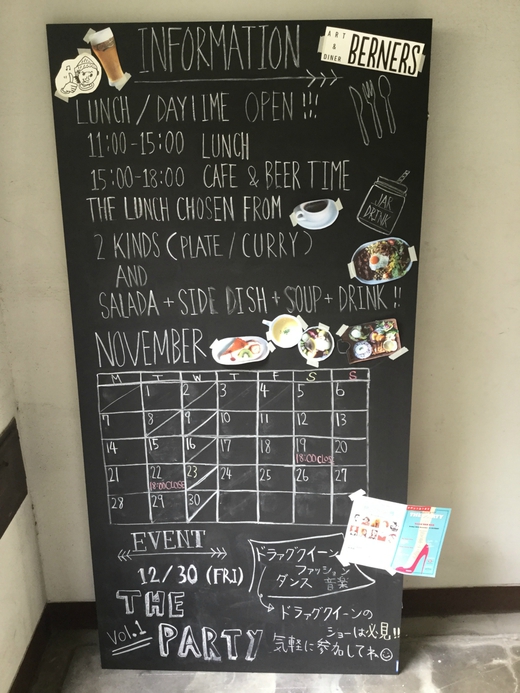 INFORMATION
ART & DINER BERNERS
LUNCH / DAYTIME OPEN !!!
11:00-15:00 LUNCH
15:00-18:00 CAFE & BEER TIME
THE LUNCH CHOSEN FROM
JAR DRINK
2 KINDS (PLATE / CURRY)
AND
SALADA + SIDE DISH + SOUP + DRINK !!
NOVEMBER
M T W T F S S
1 2 3 4 5 6
7 8 9 10 11 12 13
14 15 16 17 18 19 20
18:00 CLOSE
21 22 23 24 25 26 27
18:00 CLOSE
28 29 30
EVENT
12/30 (FRI)
THE
PARTY
vol.1
ドラァグクイーン
ファッション
ダンス 音楽
ドラァグクイーンの
ショーは必見!!
気軽に参加してね